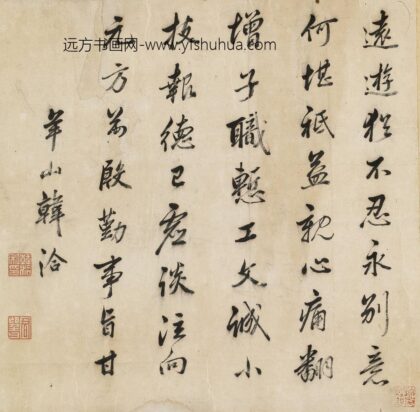 远方书画网-www.yfshuhua.com
遠遊猶不忍永别意
何堪祗益親心痛翻
增子職慙工文誠小
技報德已虚談泣向
方殷勤事旨甘
羊山韓洽